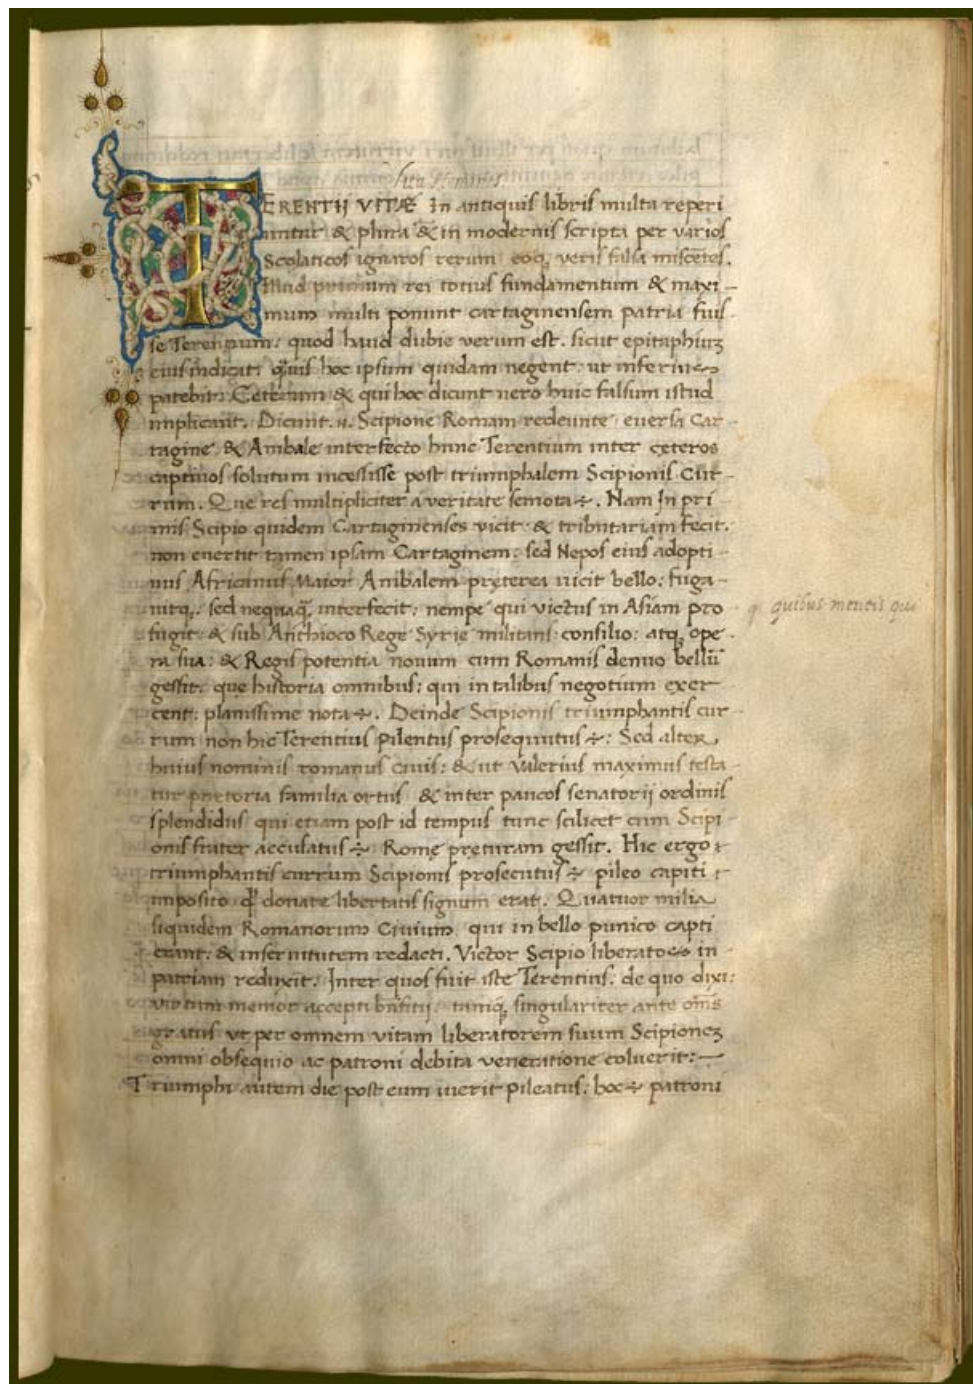 TERENTII VITÆ In antiquis libris multa reperi
untur & plura & in modernis scripta per varios
Scolaticos ignaros rerum eoq, veris falsa miscẽtes.
Illud primum rei totius fundamentum & maxi-
mum multi ponunt cartaginensem patria fuis-
se Terentium: quod haud dubie verum est. sicut epitaphiuʒ
eius indicat: q̃uis hoc ipsum quidam negent: ut inferius
patebit: Ceterum & qui hoc dicunt uero huic falsum istud
implicant. Dicunt .n. Scipione Romam redeunte euersa Car-
tagine & Anibale interfecto hunc Terentium inter ceteros
captiuos solutum incessisse post triumphalem Scipionis Cur-
rum. Que res multipliciter a veritate semota ÷. Nam In pri-
mis Scipio quidem Cartaginenses vicit & tributariam fecit.
non euertit tamen ipsam Cartaginem: sed Nepos eius adopti-
uus Africanus Maior Anibalem pręterea uicit bello: fuga-
uitq,: sed nequaq̃, interfecit: nempe qui victus in Asiam pro
fugit: & sub Anthioco Rege Syrie militans consilio: atq, ope-
ra sua: & Regis potentia nouum cum Romanis denuo bellũ
gessit: que historia omnibus: qui in talibus negotium exer-
cent: planissime nota ÷. Deinde Scipionis triumphantis cur-
rum non hic Terentius Pileatus prosequutus ÷: Sed alter
huius nominis romanus ciuis: & ut Valerius maximus testa-
tur pretoria familia ortus & inter paucos senatorij ordinis
splendidus qui etiam post id tempus tunc scilicet cum Scipi-
onis frater accusatus ÷ Romę preturam gessit. Hic ergo
triumphantis currum Scipionis prosecutus ÷ pileo capiti
imposito donate libertatis signum erat. Quatuor milia
siquidem Romanorum Ciuium qui in bello punico capti
erant: & in seruitutem redacti. Victor Scipio liberatos in
patriam reduxit. Inter quos fuit iste Terentius. de quo dixi:
memor accepti bñfitij singulariter ante om̃s
gratus ut per omnem vitam liberatorem suum Scipioneʒ
omni obsequio ac patroni debita veneratione coluerit:—
Triumphi autem die post eum iuerit Pileatus: hoc ÷ patroni
quibus mentis qui